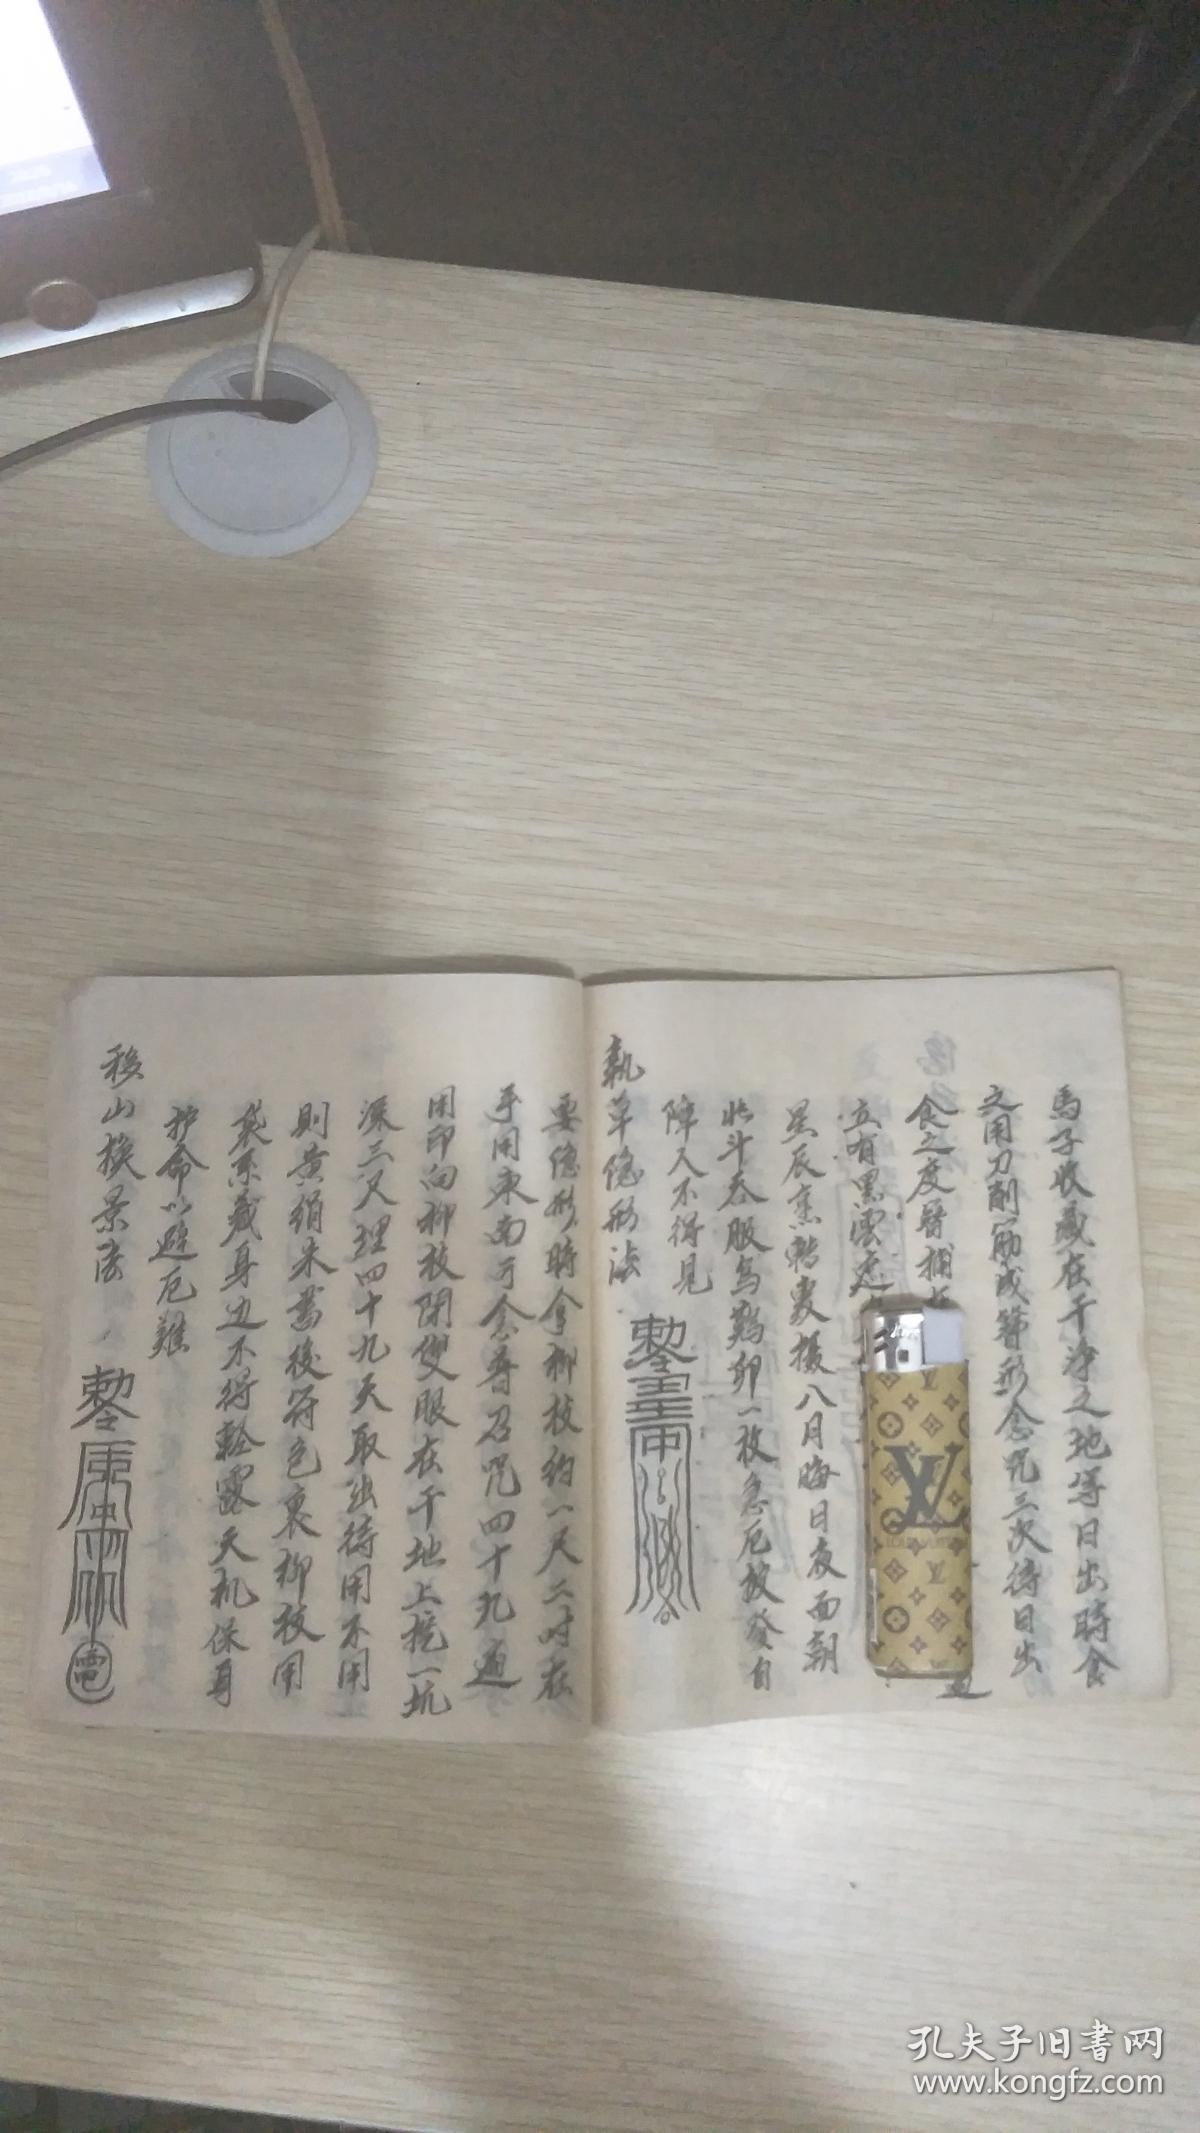 馬子收藏在干淨之地等日出時食
之用刀削筋成簪形念咒三次待日出
食之度唇捕
立有黑雲遮
星辰 八月晦日夜面朝
北斗吞服烏鷄卵一枚急厄披發自
陣入不得見
敕令
執草隐形法
要隐形時拿柳枝约一尺二吋在
手用東南方念普召咒四十九遍
用印向柳枝閉雙眼在干地上挖一坑
深三尺埋四十九天取出待用不用
則黄绢朱書後符包裹柳枝用
袋系藏身边不得輕露天机保身
护命以避厄難
移山换景法
敕令
電
LV
LOUIS VUITTON
孔夫子旧書网
www.kongfz.com